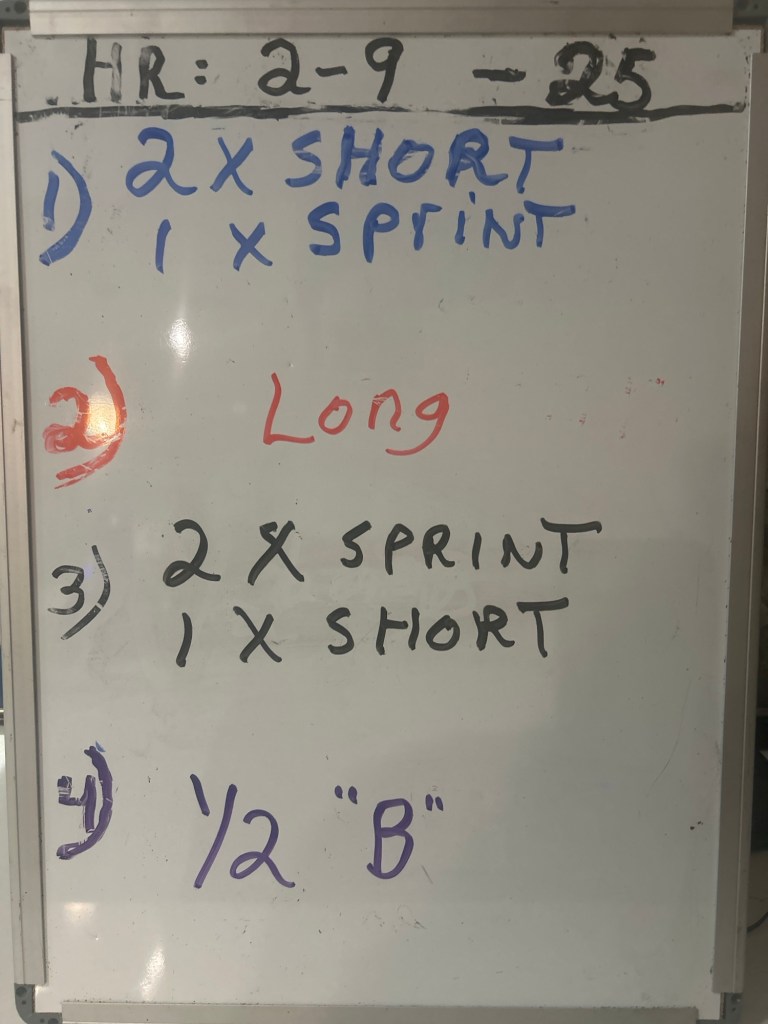 HR: 2-9 - 25
1) 2 X SHORT
1 X SPriNT
2) Long
3) 2 X SPRINT
1 X SHORT
4) 1/2 "B"